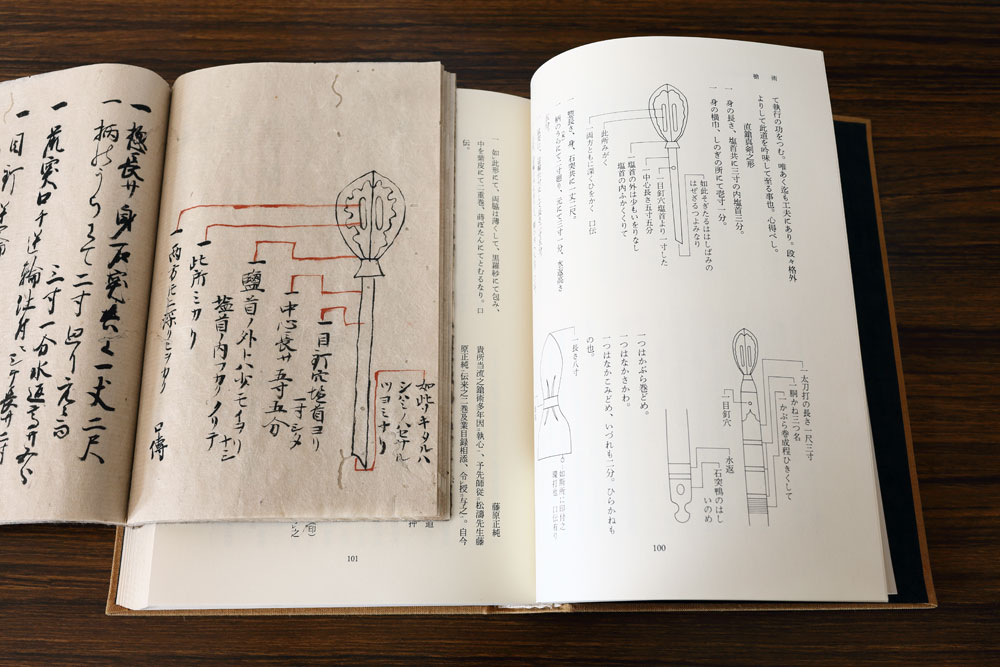 槍術
て執行の功をつむ。唯あく迄も工夫にあり。段々格外
よりして此道を吟味して至る事也。心得べし。
直鎗真剣之形
一 身の長さ、塩首共に三寸の内塩首三分。
一 身の横巾、しのぎの所にて壱寸一分。
如此そぎたるははしばみの
はぜざるつよみなり
一目釘穴塩首より一寸した
一中心長さ五寸五分
一塩首の外は少もいをりなし
塩首の内ふかくくりて
一此所みがく
一両方ともに深くひをかく 口伝
一 惣長さ、身、石突共に一丈二尺。
一太刀打の長さ一尺三寸
一胴かね三つ名
一かぶら巻成程ひきくして
一目釘穴
一水返
一石突鴨のはし
いのめ
一つはかぶら巻どめ。
一つはなかさかわ。
一つはなかこみどめ、いづれも二分。ひらかねも
の也。
一長さ八寸
100
一如此形にて、両脇は薄くして、黒羅紗にて包み、
中を菊皮にて二重巻、蒔ぼたんにてとむるなり。口
伝。
藤原正純
貴所当流之鎗術多年因執心、予先師従松濤先生藤
原正純伝来之二巻及業目録相添、令授与之。自今
101
如此ソキタルハ
シハミハセサル
ツヨミナリ
一目釘穴塩首ヨリ
一寸シタ
一中心長サ五寸五分
一鹽首ノ外ハ少モイヲリナシ
塩首ノ内フカクノリテ
一此所ミカク
一両方ニ深クヒヲカク 口傳
一惣長サ身石突共ニ一丈二尺
一柄ノうらにて二寸廻り元ニ而
三寸一分水返高サ
一目釘